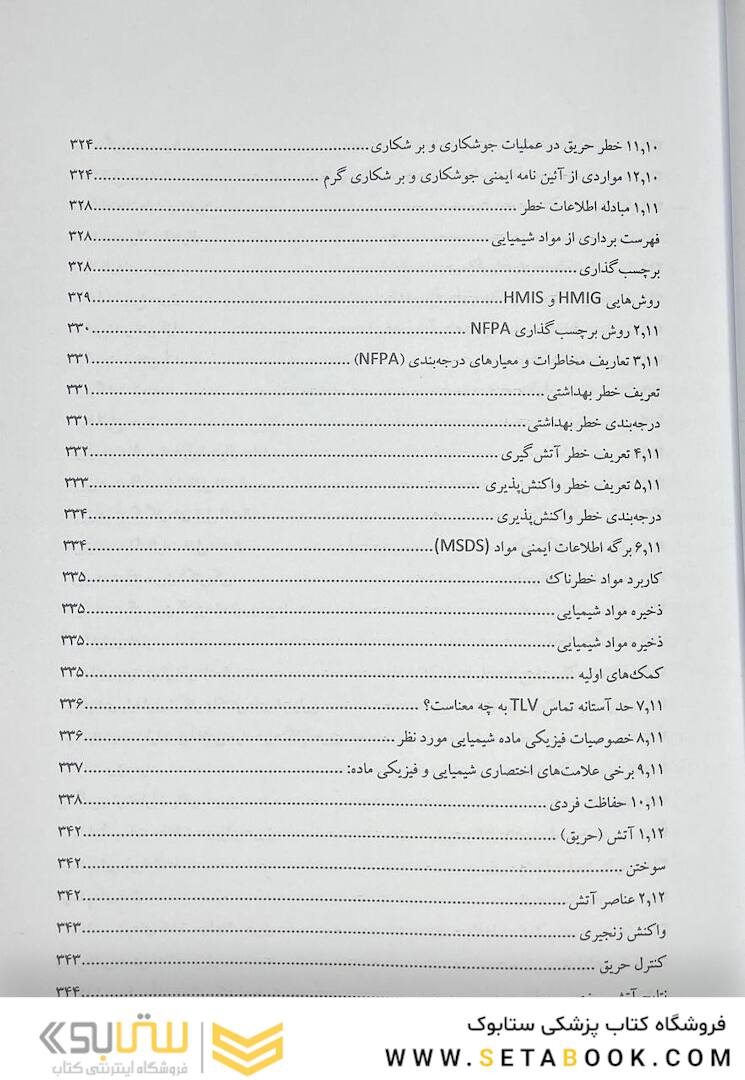 ۱۱,۱۰ خطر حریق در عملیات جوشکاری و بر شکاری..........۳۲۴
۱۲,۱۰ مواردی از آئین نامه ایمنی جوشکاری و بر شکاری گرم ..........۳۲۴
۱,۱۱ مبادله اطلاعات خطر..........۳۲۸
فهرست برداری از مواد شیمیایی..........۳۲۸
برچسب‌گذاری..........۳۲۸
روش‌هایی HMIG و HMIS..........۳۲۹
۲,۱۱ روش برچسب‌گذاری NFPA ..........۳۳۰
۳,۱۱ تعاریف مخاطرات و معیارهای درجه‌بندی (NFPA) ..........۳۳۱
تعریف خطر بهداشتی..........۳۳۱
درجه‌بندی خطر بهداشتی..........۳۳۱
۴,۱۱ تعریف خطر آتش‌گیری..........۳۳۲
۵,۱۱ تعریف خطر واکنش‌پذیری ..........۳۳۳
درجه‌بندی خطر واکنش‌پذیری..........۳۳۴
۶,۱۱ برگه اطلاعات ایمنی مواد (MSDS)..........۳۳۴
کاربرد مواد خطرناک ..........۳۳۵
ذخیره مواد شیمیایی..........۳۳۵
ذخیره مواد شیمیایی..........۳۳۵
کمک‌های اولیه ..........۳۳۵
۷,۱۱ حد آستانه تماس TLV به چه معناست؟ ..........۳۳۶
۸,۱۱ خصوصیات فیزیکی ماده شیمیایی مورد نظر..........۳۳۶
۹,۱۱ برخی علامت‌های اختصاری شیمیایی و فیزیکی ماده:..........۳۳۷
۱۰,۱۱ حفاظت فردی..........۳۳۸
۱,۱۲ آتش (حریق) ..........۳۴۲
سوختن..........۳۴۲
۲,۱۲ عناصر آتش..........۳۴۲
واکنش زنجیری..........۳۴۳
کنترل حریق..........۳۴۳
..........۳۴۴
فروشگاه کتاب پزشکی ستابوک
WWW.SETABOOK.COM
ستابوک
فروشگاه اینترنتی کتاب